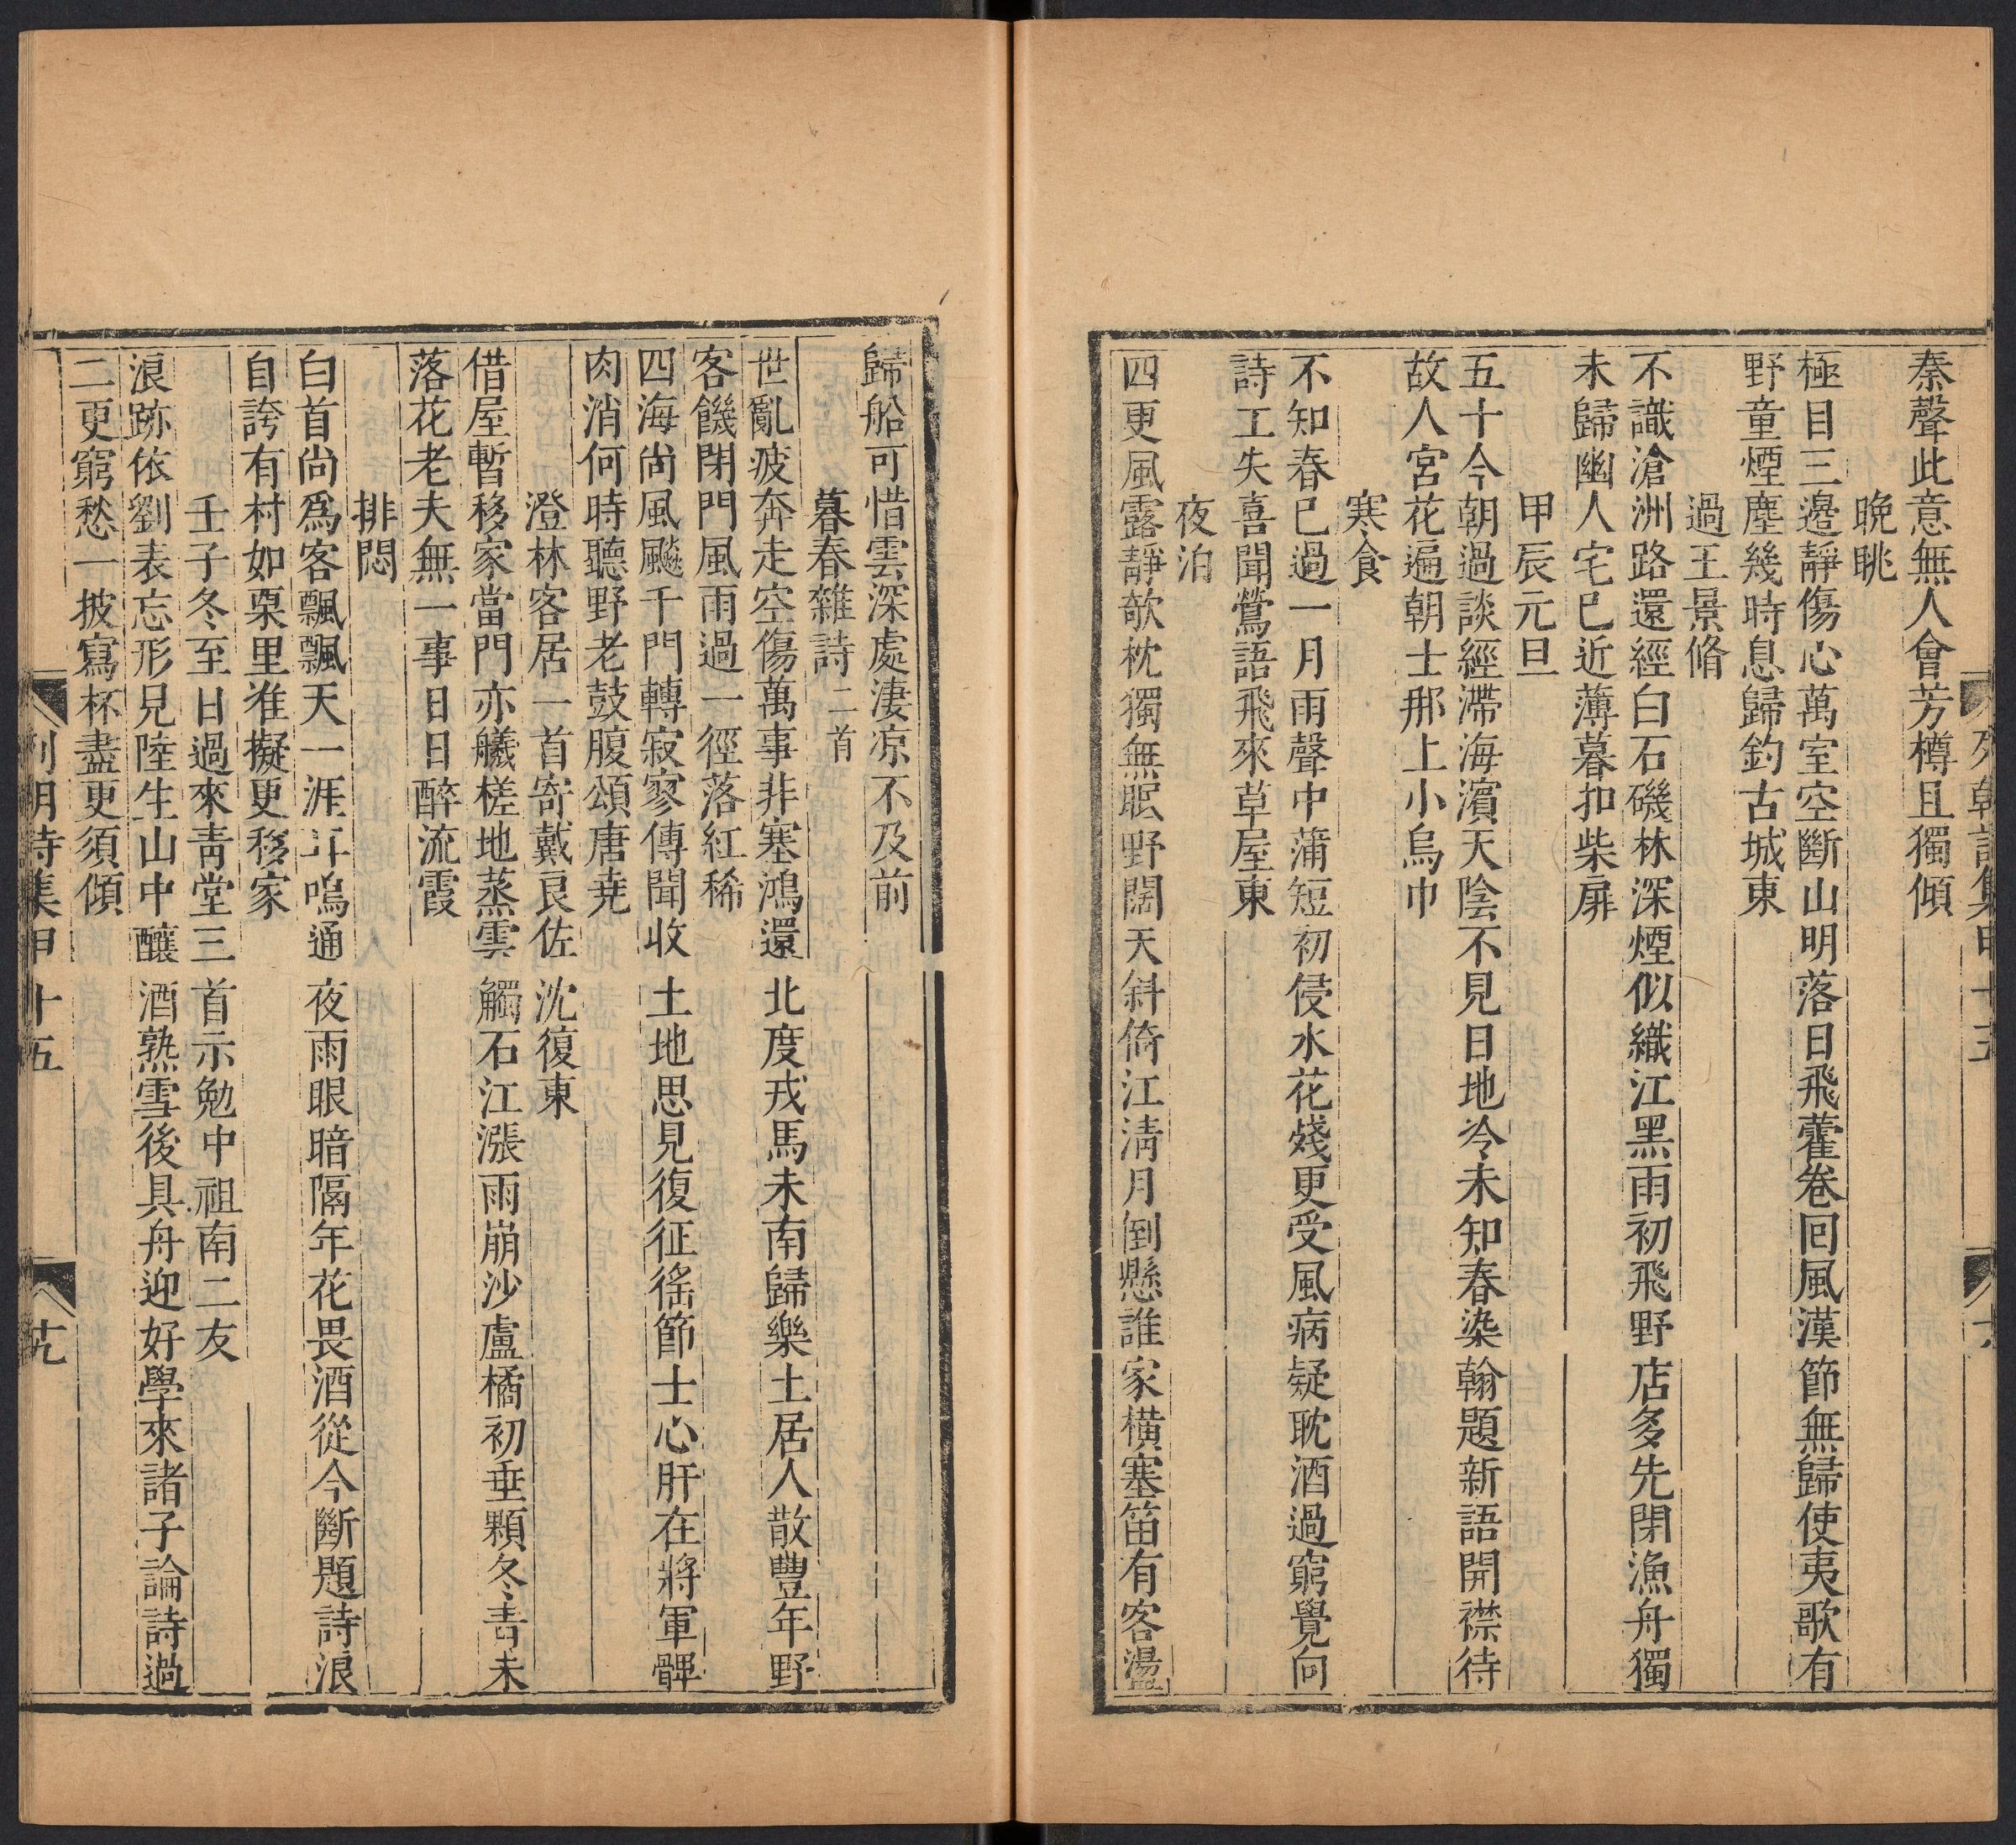 秦聲此意無人會芳樽且獨傾
晚眺
極目三邊靜傷心萬室空斷山明落日飛藿卷回風漢節無歸使夷歌有
野童煙塵幾時息歸釣古城東
過王景脩
不識滄洲路還經白石磯林深煙似織江黑雨初飛野店多先閉漁舟獨
未歸幽人宅已近薄暮扣柴扉
甲辰元旦
五十今朝過談經滯海濱天陰不見日地冷未知春染翰題新語開襟待
故人宮花遍朝士那上小烏巾
寒食
不知春已過一月雨聲中蒲短初侵水花殘更受風病疑耽酒過窮覺向
詩工失喜聞鶯語飛來草屋東
夜泊
四更風露靜欹枕獨無眠野闊天斜倚江清月倒懸誰家橫塞笛有客盪
歸船可惜雲深處淒凉不及前
暮春雜詩二首
世亂疲奔走空傷萬事非塞鴻還北度戎馬未南歸樂土居人散豐年野
客饑閉門風雨過一徑落紅稀
四海尚風颷千門轉寂寥傳聞收土地思見復征徭節士心肝在將軍髀
肉消何時聽野老鼓腹頌唐堯
澄林客居一首寄戴良佐沈復東
借屋暫移家當門亦艤槎地蒸雲觸石江漲雨崩沙盧橘初垂顆冬青未
落花老夫無一事日日醉流霞
排悶
白首尚爲客飄飄天一涯耳鳴通夜雨眼暗隔年花畏酒從今斷題詩浪
自誇有村如栗里准擬更移家
壬子冬至日過來青堂三首示勉中祖南二友
浪跡依劉表忘形見陸生山中釀酒熟雪後具舟迎好學來諸子論詩過
二更窮愁一披寫杯盡更須傾
列朝詩集甲十五
十九